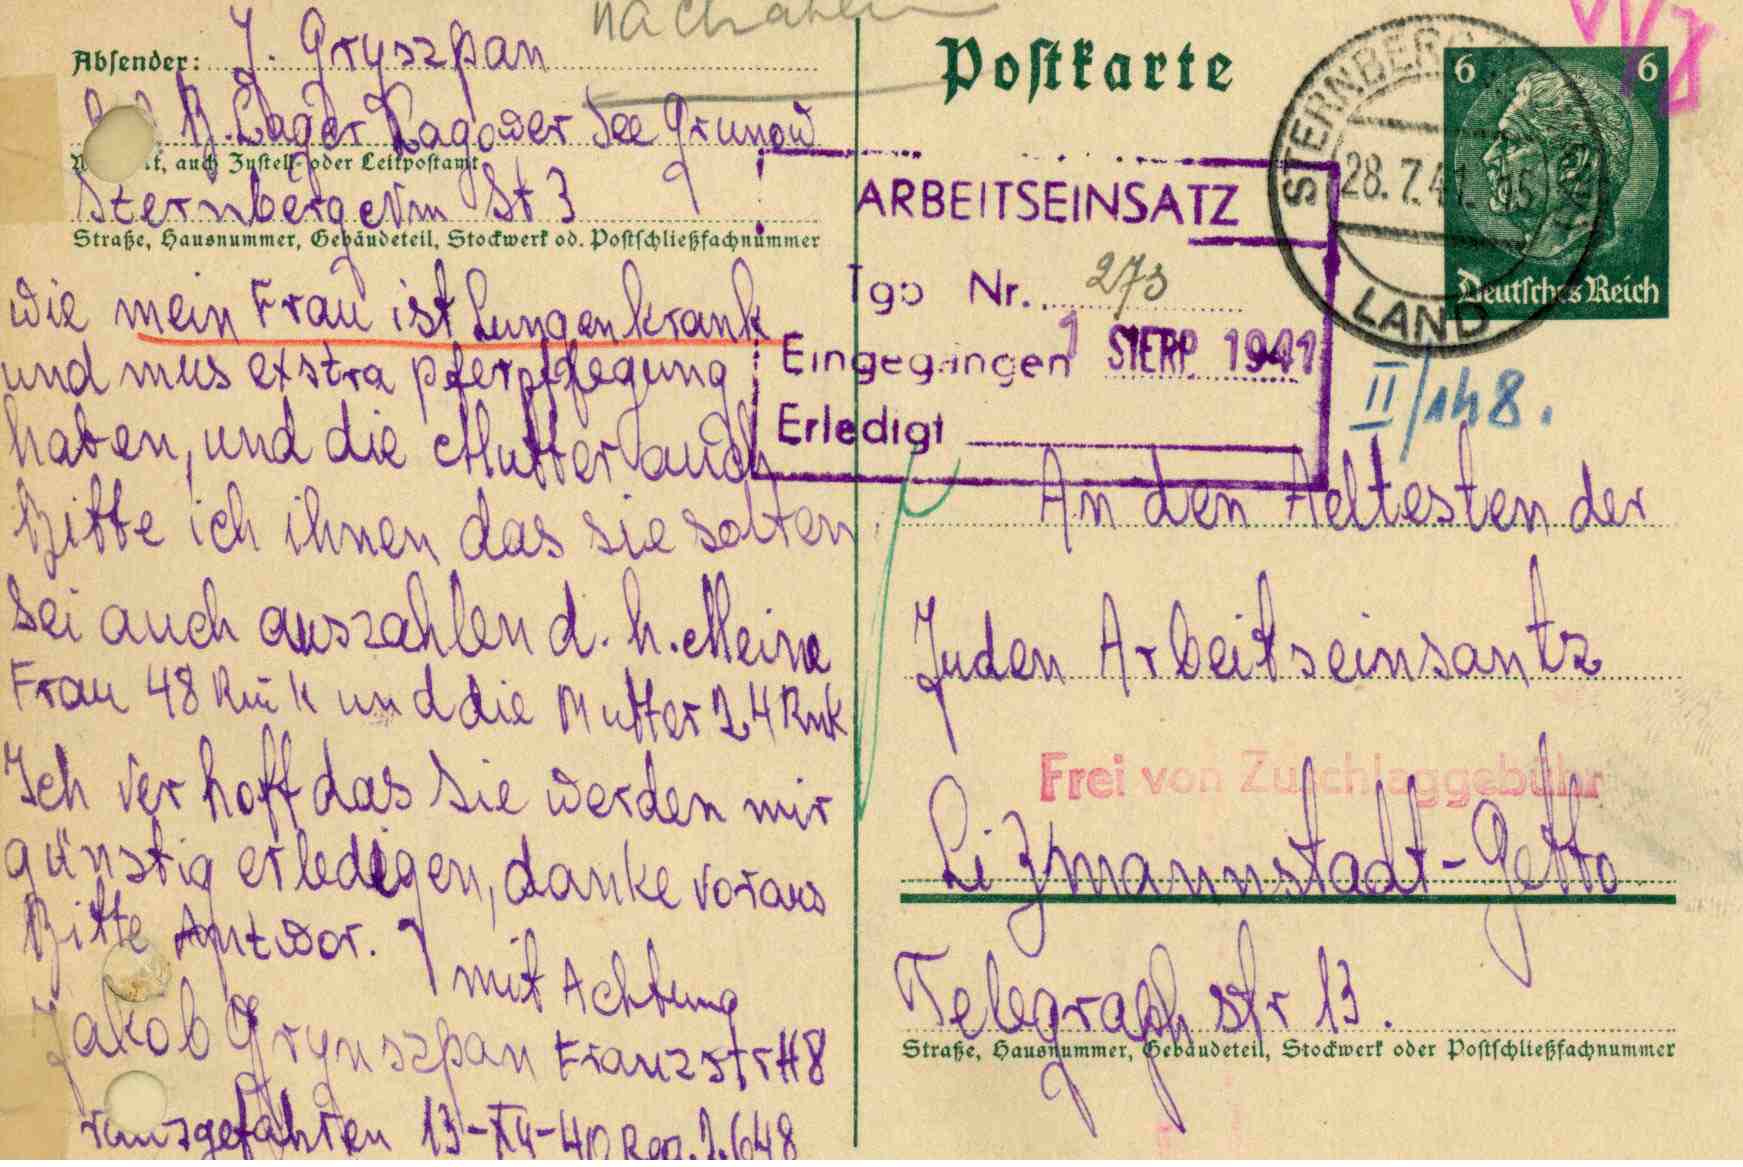 nachzahlen
Absender: J. Gryszpan
R. Lager Lagower See Grunow
auch Zustell- oder Leitpostamt
Sternberg Nm St 3
Straße, Hausnummer, Gebäudeteil, Stockwerk od. Postschließfachnummer
wie mein Frau ist Lungenkrank
und mus exstra pferpflegung
haben, und die Mutter auch
Bitte ich ihnen das sie solten
Sei auch auszahlen d. h. Meine
Frau 48 Rmk und die Mutter 24 Rmk
Ich ver hoff das Sie werden mir
günstig erledigen, danke voraus
Bitte Antwor.
mit Achtung
Jakob Grynszpan Franzstr 48
rausgefahren 13-XII-40 Reg. 2.648
Postkarte
STERNBERG
28.7.41
LAND
6 6
Deutsches Reich
ARBEITSEINSATZ
Tgb Nr. 273
Eingegangen 1 SIERP. 1941
Erledigt
II/148.
An den Aeltesten der
Juden Arbeitseinsantz
Frei von Zuschlaggebühr
Lizmannstadt-Getto
Telegraph str 13.
Straße, Hausnummer, Gebäudeteil, Stockwerk oder Postschließfachnummer